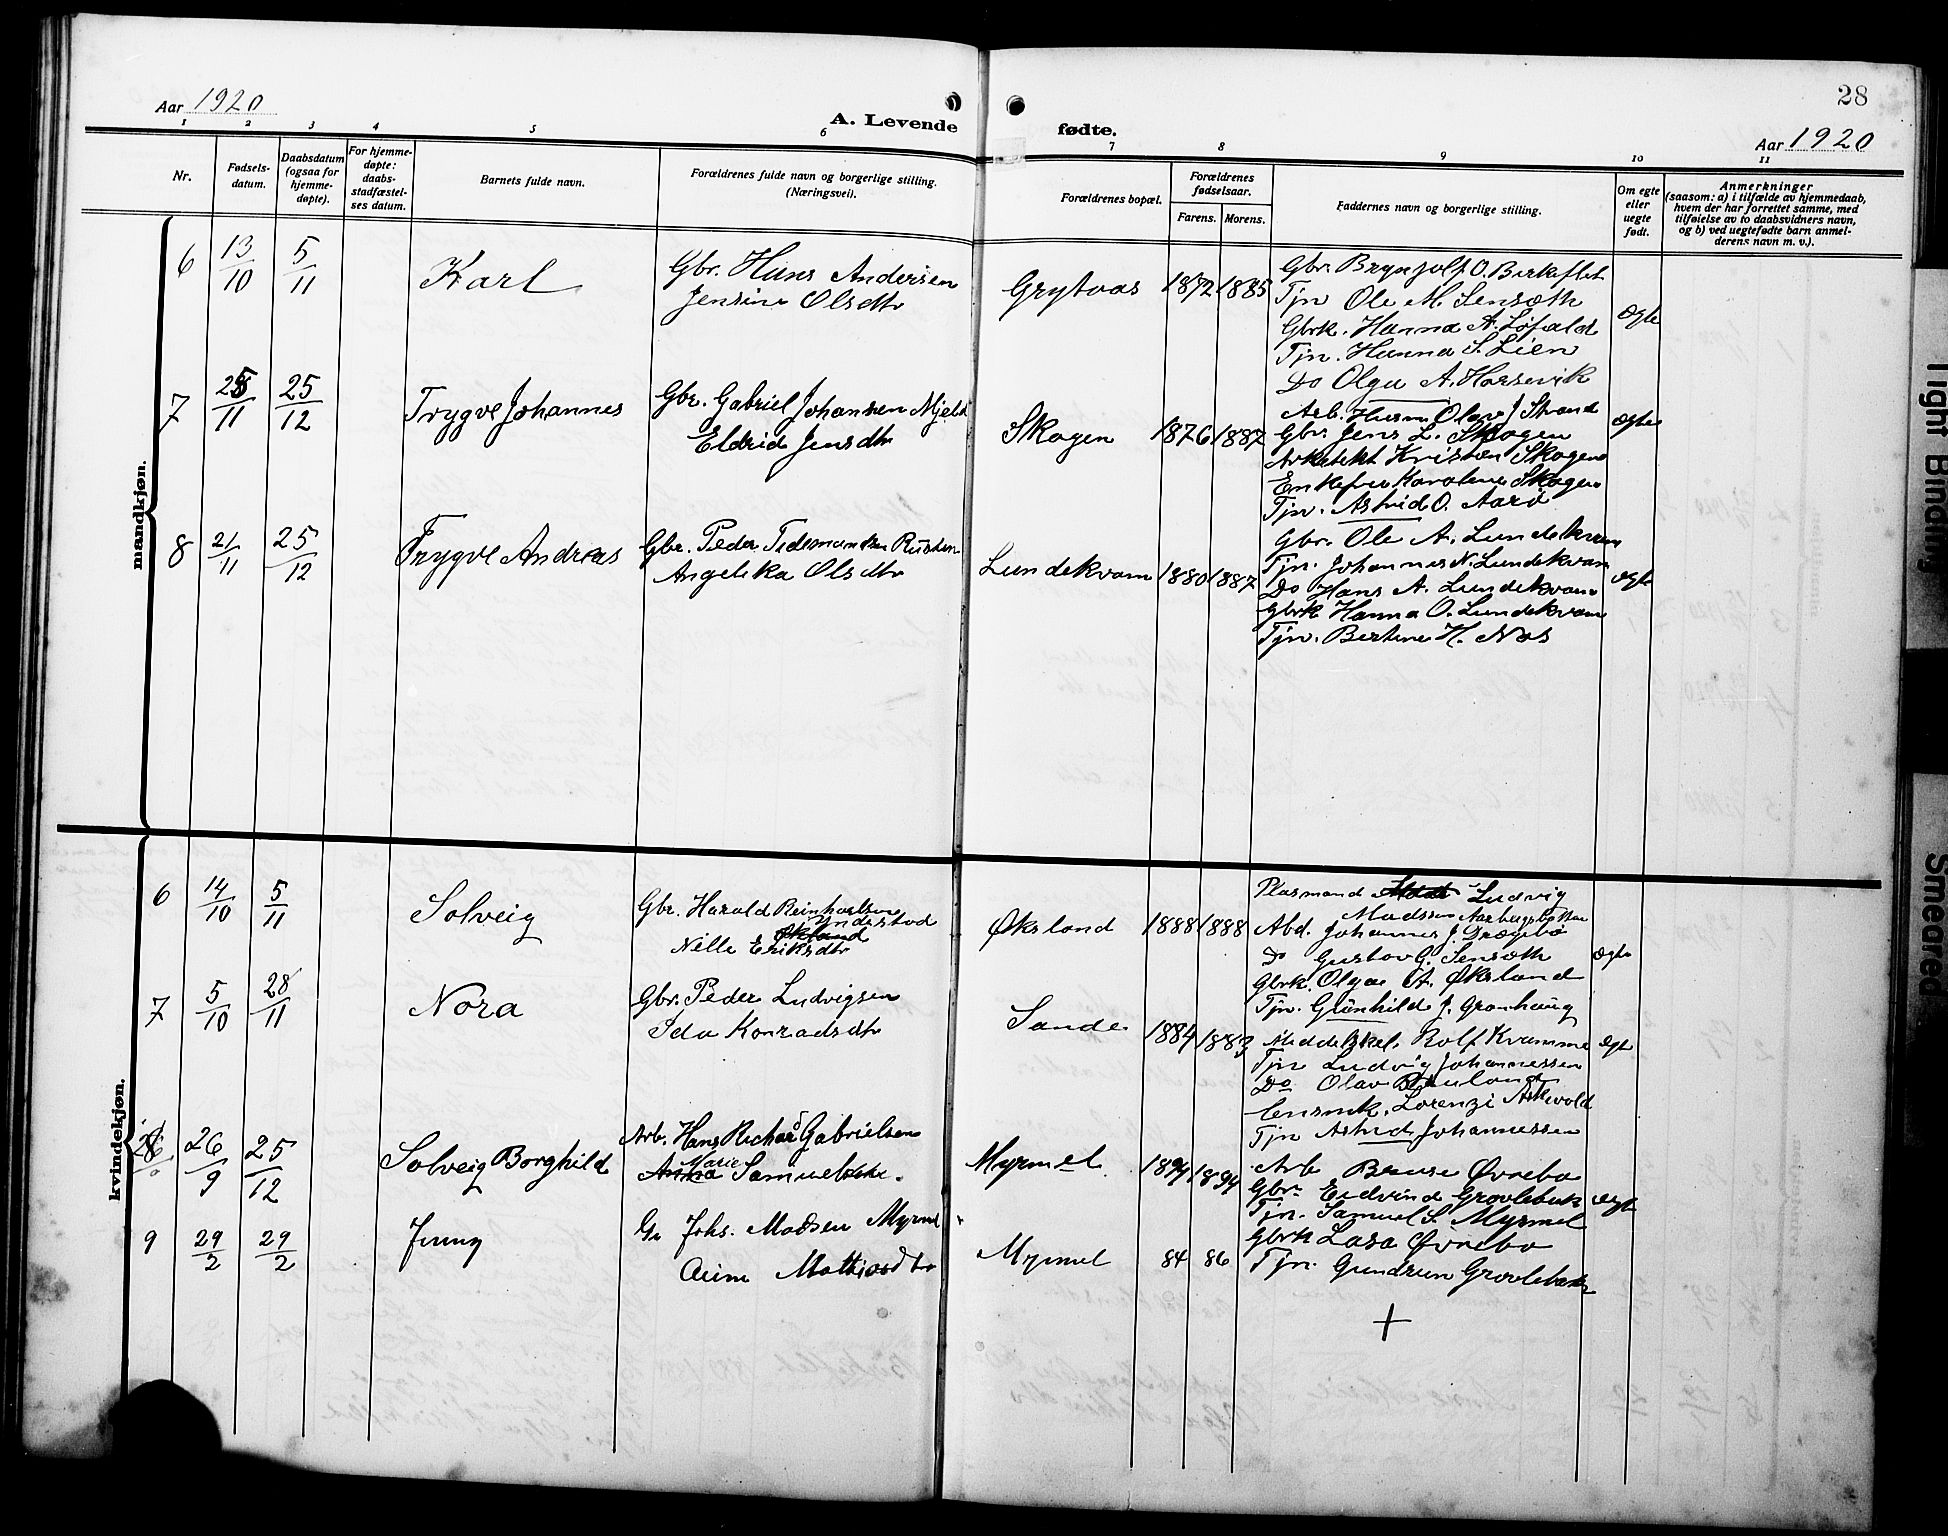 28
Aar 1920
A. Levende
fødte.
Aar 1920
1 2 3 4 5 6 7 8 9 10 11
Nr.
Fødsels-
datum.
Daabsdatum
(ogsaa for
hjemme-
døpte).
For hjemme-
døpte:
daabs-
stadfæstel-
ses datum.
Barnets fulde navn.
Forældrenes fulde navn og borgerlige stilling.
(Næringsvei).
Forældrenes bopæl.
Forældrenes
fødselsaar.
Farens. Morens.
Faddernes navn og borgerlige stilling.
Om egte
eller
uegte
født.
Anmerkninger
(saasom: a) i tilfælde av hjemmedaab,
hvem der har forrettet samme, med
tilføielse av to daabsvidners navn,
og b) ved uegtefødte barn anmel-
derens navn m. v.).
mandkjøn.
6 13/10 5/11 Karl
Gbr. Hans Andersen
Jensine Olsdtr
Grytaas 1872 1885
Gbr. Brynjolf O. Birkeflet
Tjn Ole M. Sensæth
Gbrk. Hanna A. Løfald
Tjn. Hanna S. Lien
Do Olga A. Horsevik
ægte
7 /11 25/12 Trygve Johannes
Gbr. Gabriel Johansen Mjelst
Eldrid Jensdtr
Skogen 1876 1887
Arb. Olav J Strand
Gbr. Jens L. Skogen
Arkitekt Kristen Skogen
Enkefru Karoline Skogen
Tjn. Astrid O. Aarø
ægte
8 21/11 25/12 Trygve Andreas
Gbr. Peder Tidemansen Rusten
Angelika Olsdtr
Lundekvam 1880 1887
Gbr. Ole A. Lundekvam
Tjn. Johannes N. Lundekvam
Do Hans A. Lundekvam
Gbrk Hanna O. Lundekvam
Tjn. Bertine H. Nes
ægte
kvindekjøn.
6 14/10 5/11 Solveig
Gbr. Harald Reinholtsen
Indestad
Økland
Nille Eriksdtr
Øksland 1888 1888
Plasmand Ludvig
Madssen
Abd. Johannes J. Drægebø
Do Gustav G. Sensæth
Gbrk. Olga A. Øksland
Tjn. Gunhild J. Gronhaug
ægte
7 5/10 28/11 Nora
Gbr. Peder Ludvigsen
Ida Konradsdtr
Sande 1884 1883
Rolf Kvamme
Tjn Ludvig Johannessen
Do Olav
Lorenzi Askvold
Tjn Astrid Johannessen
egte
8 26/9 25/12 Solveig Borghild
Arb. Hans Richard Gabrielsen
Marie
Anna Samuelsdtr.
Myrmel 1894 1894
Arb Øvrebø
Gbr. Eidvind Grovlebak
Tjn. Samuel S. Myrmel
Gbrk Øvrebø
Tjn. Gundrun Grovlebak
egte
9 29/2 29/2 Jenny
Johs. Madsen Myrmel
Mathiasdtr
Myrmel 84 86
+
Tight Binding
Smeared